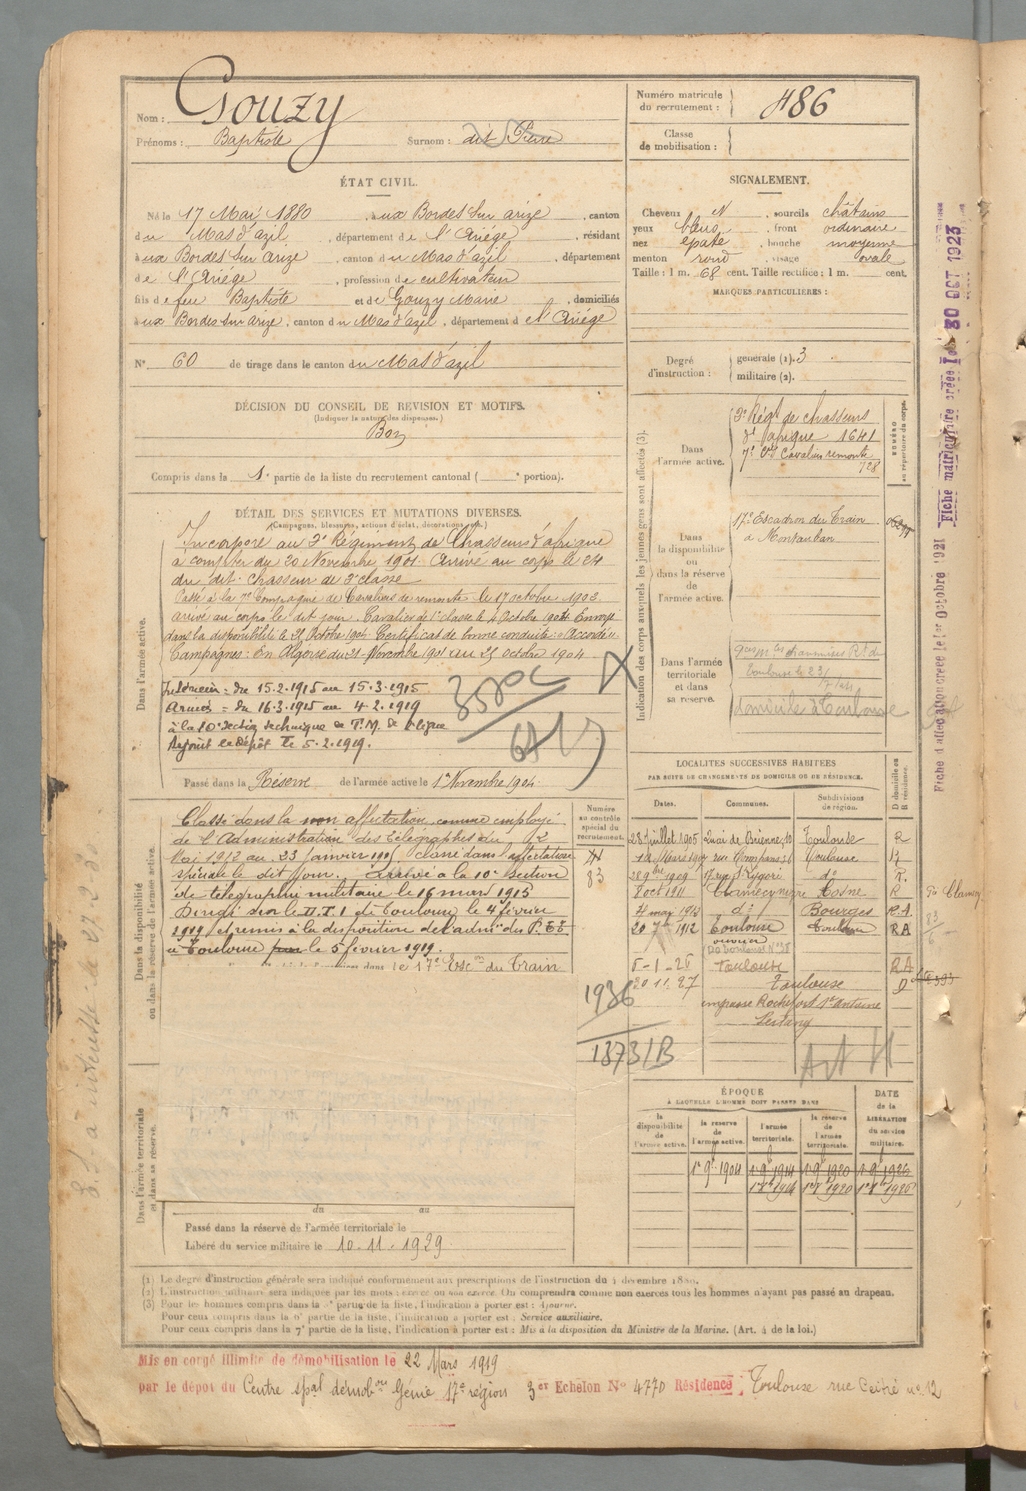 Nom : Gouzy
Prénoms : Baptiste Surnom : dit Pierre
Numéro matricule du recrutement : 486
Classe de mobilisation :
ÉTAT CIVIL.
Né le 17 Mai 1880, aux Bordes sur arize, canton
du Mas d'azil, département de l'Ariège, résidant
aux Bordes sur arize, canton du Mas d'azil, département
de l'Ariège, profession de cultivateur
fils de feu Baptiste et de Gouzy Marie, domiciliés
aux Bordes sur arize, canton du Mas d'azil, département de l'Ariège
N° 60 de tirage dans le canton du Mas d'azil
SIGNALEMENT.
Cheveux N, sourcils châtains
yeux bleus, front ordinaire
nez épaté, bouche moyenne
menton rond, visage ovale
Taille : 1 m. 68 cent. Taille rectifiée : 1 m. cent.
MARQUES PARTICULIÈRES :
Degré d'instruction : générale (1). 3
militaire (2).
DÉCISION DU CONSEIL DE REVISION ET MOTIFS.
(Indiquer la nature des dispenses.)
Bon
Compris dans la 1e partie de la liste du recrutement cantonal ( e portion).
DÉTAIL DES SERVICES ET MUTATIONS DIVERSES.
(Campagnes, blessures, actions d'éclat, décorations, etc.)
Dans l'armée active.
Incorporé au 3e Régiment de Chasseurs d'afrique
à compter du 20 Novembre 1901. Arrivé au corps le 24
du dit. chasseur de 2e classe
Passé à la 7e Compagnie de Cavaliers de remonte le 17 octobre 1903
arrivé au corps le dit jour. Cavalier de 1e classe le 4 Octobre 1904 Envoyé
dans la disponibilité le 25 Octobre 1904 Certificat de bonne conduite "Accordé"
Campagnes : En Algérie du 21 Novembre 1901 au 25 octobre 1904
Intérieur - du 15.2.1915 au 15.3.1915
Armées - du 16.3.1915 au 4.2.1919
à la 10e Section technique de T.M. de 2e ligne
Rejoint le Dépôt le 5.2.1919.
Passé dans la Réserve de l'armée active le 1er Novembre 1904
Indication des corps auxquels les jeunes gens sont affectés (3).
Dans l'armée active.
3e Régt de chasseurs
d'afrique 1641
7e Cie Cavaliers remonte
728
NUMÉRO au répertoire du corps.
Dans la disponibilité ou dans la réserve de l'armée active.
17e Escadron du Train
à Montauban
Dans l'armée territoriale et dans sa réserve.
domicilié à Toulouse
Dans la disponibilité ou dans la réserve de l'armée active.
Classé dans la non affectation comme employé
de l'Administration des télégraphes du 12
Mai 1912 au 23 janvier 1915 classé dans l'affectation
spéciale le dit jour. Arrivé à la 10e Section
de télégraphie militaire le 16 mars 1915
Dirigé sur le D.T.I de Toulouse le 4 février
1919 et remis à la disposition de l'admon des P.T.T
à Toulouse le 5 février 1919.
dans le 17e Escon du Train
Numéro au contrôle spécial du recrutement.
83
1936
1373/B
LOCALITÉS SUCCESSIVES HABITÉES
PAR SUITE DE CHANGEMENTS DE DOMICILE OU DE RÉSIDENCE.
Dates. Communes. Subdivisions de région. D domicile ou R résidence.
28 juillet 1905 Quai de Brienne, 10 Toulouse R
18 Mars 1907 rue Compans 56 Toulouse R
do R.
8 oct 1911 Cosne R
4 may 1912 do Bourges R.A
20 7bre 1912 Toulouse Toulouse RA
5-1-25 Toulouse RA
20.11.27 Toulouse D
impasse Rochefort St Antoine
Art
ÉPOQUE
À LAQUELLE L'HOMME DOIT PASSER DANS
DATE de la LIBÉRATION du service militaire.
la disponibilité de l'armée active. la réserve de l'armée active. l'armée territoriale. la réserve de l'armée territoriale.
1er 9b 1904 1er 9b 1914 1er 9b 1920 1er 9b 1926
Dans l'armée territoriale et dans sa réserve.
du au
Passé dans la réserve de l'armée territoriale le
Libéré du service militaire le 10.11.1929
(1) Le degré d'instruction générale sera indiqué conformément aux prescriptions de l'instruction du 4 décembre 1889.
(2) L'instruction militaire sera indiquée par les mots : exercé ou non exercé. On comprendra comme non exercés tous les hommes n'ayant pas passé au drapeau.
(3) Pour les hommes compris dans la 5e partie de la liste, l'indication à porter est : Ajourné.
Pour ceux compris dans la 6e partie de la liste, l'indication à porter est : Service auxiliaire.
Pour ceux compris dans la 7e partie de la liste, l'indication à porter est : Mis à la disposition du Ministre de la Marine. (Art. 4 de la loi.)
Mis en congé illimité de démobilisation le 22 Mars 1919
par le dépôt du Centre spal démobon Génie 17e région 3er Echelon No 4770 Résidence : Toulouse rue
Fiche d'affectation créée le 1er Octobre 1921 Fiche matriculaire créée le 30 OCT 1923